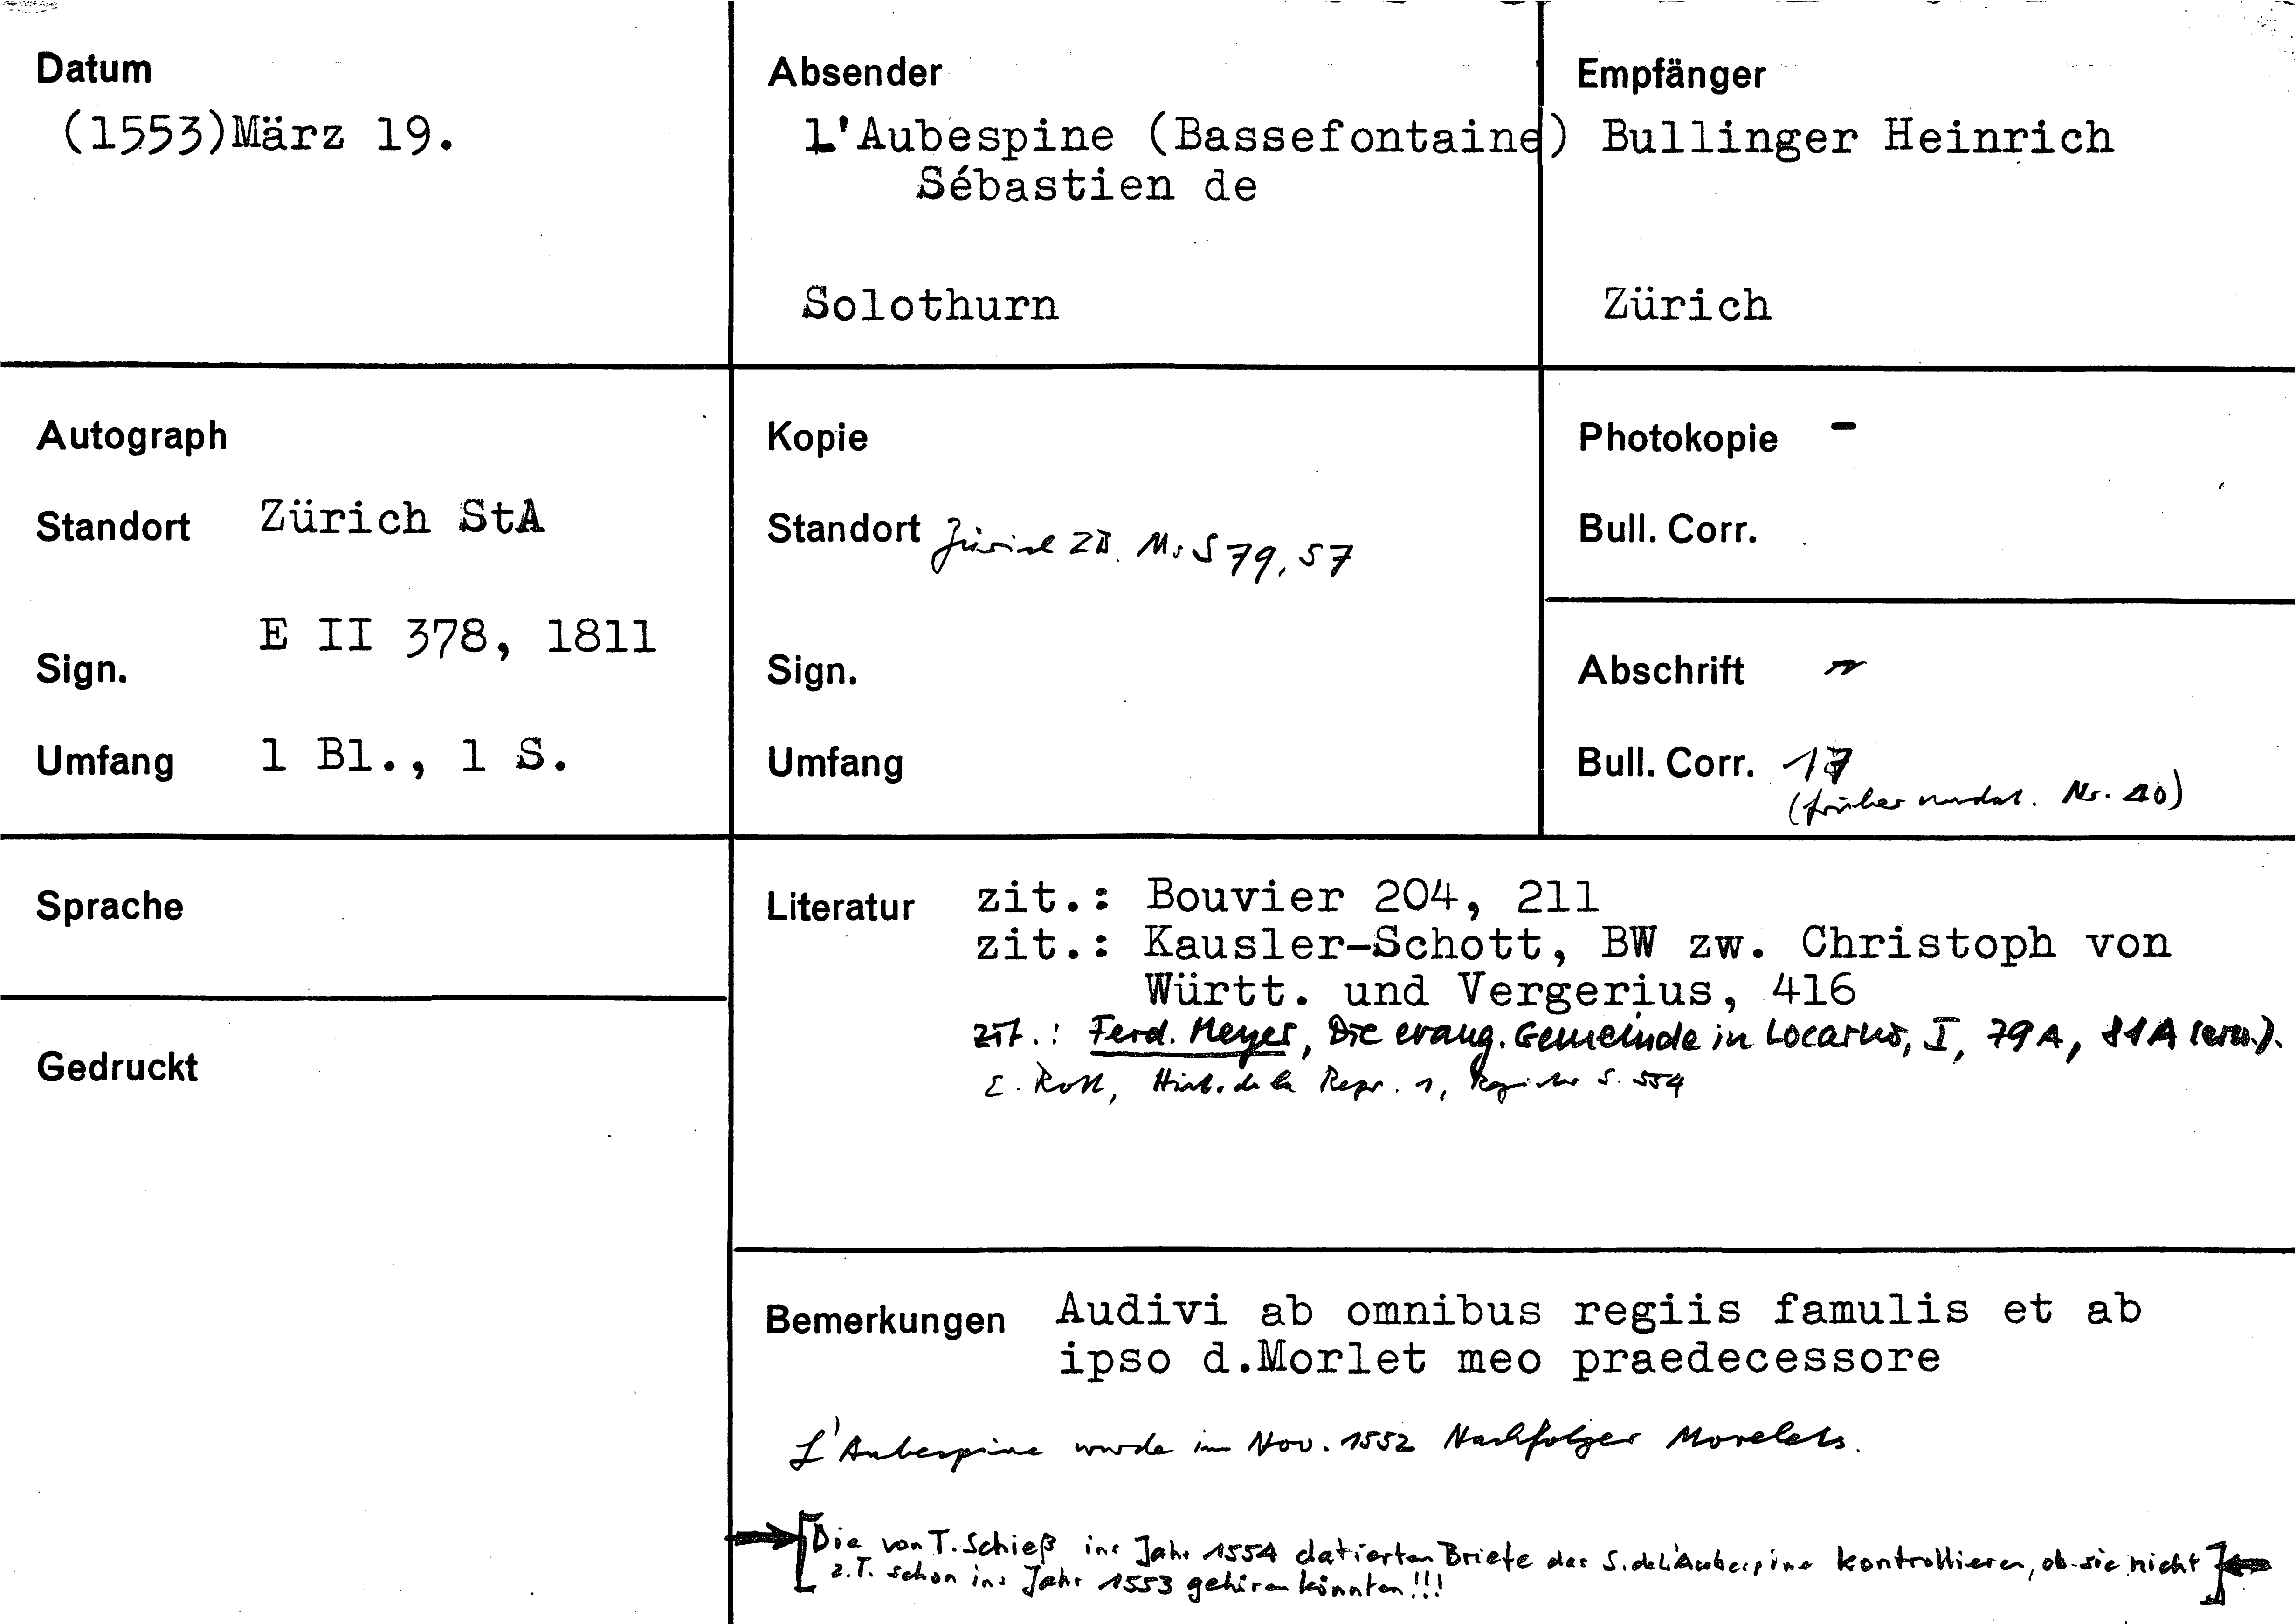 Datum
(1553)März 19.
Absender
L'Aubespine (Bassefontaine)
Sébastien de
Solothurn
Empfänger
Bullinger Heinrich
Zürich
Autograph
Standort Zürich StA
Sign. E II 378, 1811
Umfang 1 Bl., 1 S.
Kopie
Standort Zürich ZB. Ms S 79, 57
Sign.
Umfang
Photokopie -
Bull. Corr.
Abschrift
Bull. Corr. 17
(früher undat. Nr. 40)
Sprache
Gedruckt
Literatur zit.: Bouvier 204, 211
zit.: Kausler-Schott, BW zw. Christoph von
Württ. und Vergerius, 416
zit.: Ferd. Meyer, Die evang. Gemeinde in Locarno, I, 79 A, 81 A (erw.).
E. Rott, Hist. de la Repr. 1, Register S. 554
Bemerkungen Audivi ab omnibus regiis famulis et ab
ipso d.Morlet meo praedecessore
L'Aubespine wurde im Nov. 1552 Nachfolger Morelets.
[Die von T. Schieß ins Jahr 1554 datierten Briefe des S. de L'Aubespine kontrollieren, ob sie nicht
z.T. schon ins Jahr 1553 gehören könnten!!!]